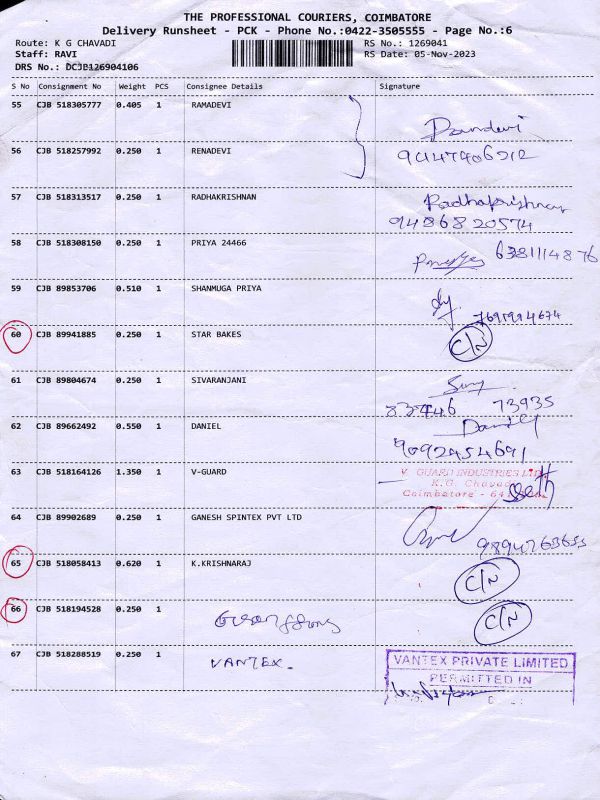 THE PROFESSIONAL COURIERS, COIMBATORE
Delivery Runsheet - PCK - Phone No.:0422-3505555 - Page No.:6
Route: K G CHAVADI RS No.: 1269041
Staff: RAVI RS Date: 05-Nov-2023
DRS No.: DCJB126904106
S No Consignment No Weight PCS Consignee Details Signature
55 CJB 518305777 0.405 1 RAMADEVI
56 CJB 518257992 0.250 1 RENADEVI
57 CJB 518313517 0.250 1 RADHAKRISHNAN Radhakrishnan
9486820574
58 CJB 518308150 0.250 1 PRIYA 24466 6381114876
59 CJB 89853706 0.510 1 SHANMUGA PRIYA
60 CJB 89941885 0.250 1 STAR BAKES C/N
61 CJB 89804674 0.250 1 SIVARANJANI
83446 73935
62 CJB 89662492 0.550 1 DANIEL Daniel
9092454691
63 CJB 518164126 1.350 1 V-GUARD V GUARD INDUSTRIES
K.G. Chavadi
Coimbatore - 64
64 CJB 89902689 0.250 1 GANESH SPINTEX PVT LTD
65 CJB 518058413 0.620 1 K.KRISHNARAJ C/N
66 CJB 518194528 0.250 1 C/N
67 CJB 518288519 0.250 1 VANTEX. VANTEX PRIVATE LIMITED
PERMITTED IN